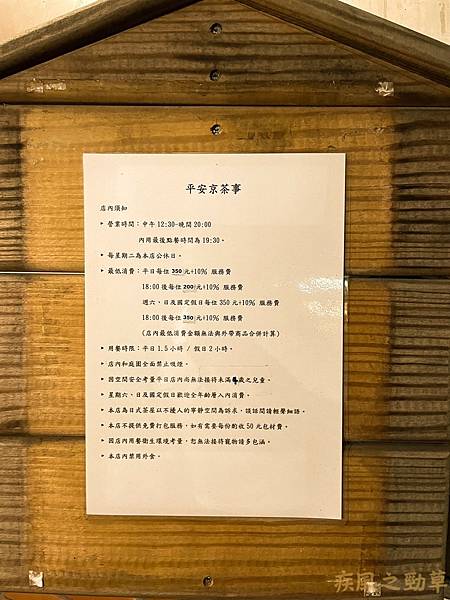 平安京茶事
店內須知
▸ 營業時間：中午 12:30-晚間 20:00
內用最後點餐時間為 19:30。
▸ 每星期二為本店公休日。
▸ 最低消費：平日每位 350 元+10% 服務費
18:00 後每位 200 元+10% 服務費
週六、日及國定假日每位 350 元+10% 服務費
18:00 後每位 350 元+10% 服務費
(店內最低消費金額無法與外帶商品合併計算)
▸ 用餐時限：平日 1.5 小時 / 假日 2 小時。
▸ 店內和庭園全面禁止吸煙。
▸ 因空間安全考量平日店內尚無法接待未滿 歲之兒童。
▸ 星期六、日及國定假日歡迎全年齡層入內消費。
▸ 本店為日式茶屋以不擾人的寧靜空間為訴求，談話間請輕聲細語。
▸ 本店不提供免費打包服務，如有需要每份酌收 50 元包材費。
▸ 因店內用餐衛生環境考量，恕無法接待寵物請多包涵。
▸ 本店內禁用外食。
疾風之勁草